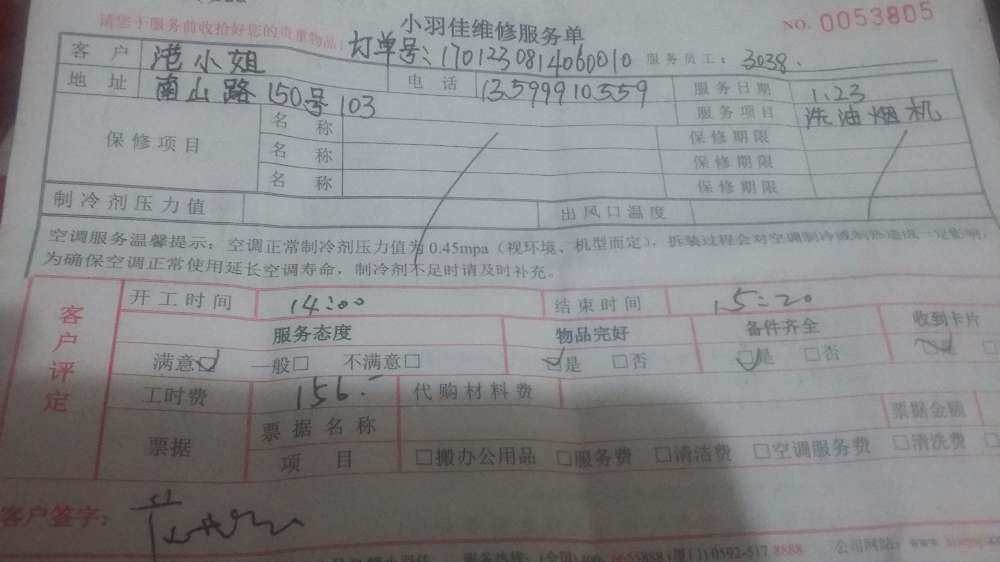 请您于服务前收拾好您的贵重物品!
小羽佳维修服务单
NO. 0053805
客户 港小姐 订单号:1701230814060010 服务员工: 3038.
地址 南山路150号103 电话 13599910559 服务日期 1.23
服务项目 洗油烟机
保修项目 名称 保修期限
名称 保修期限
名称 保修期限
制冷剂压力值 出风口温度
空调服务温馨提示:空调正常制冷剂压力值为0.45mpa(视环境、机型而定),拆装过程会对空调制冷或制热造成一定影响,
为确保空调正常使用延长空调寿命,制冷剂不足时请及时补充。
客户评定
开工时间 14:00 结束时间 15:20
服务态度 物品完好 备件齐全 收到卡片
满意□ 一般□ 不满意□ □是 □否 □是 □否
工时费 156.- 代购材料费
票据 票据名称 票据金额
项目 □搬办公用品 □服务费 □清洁费 □空调服务费 □清洗费
客户签字:
服务热线:(全国)400 0655888 (厦门)0592-517 8888 公司网站: